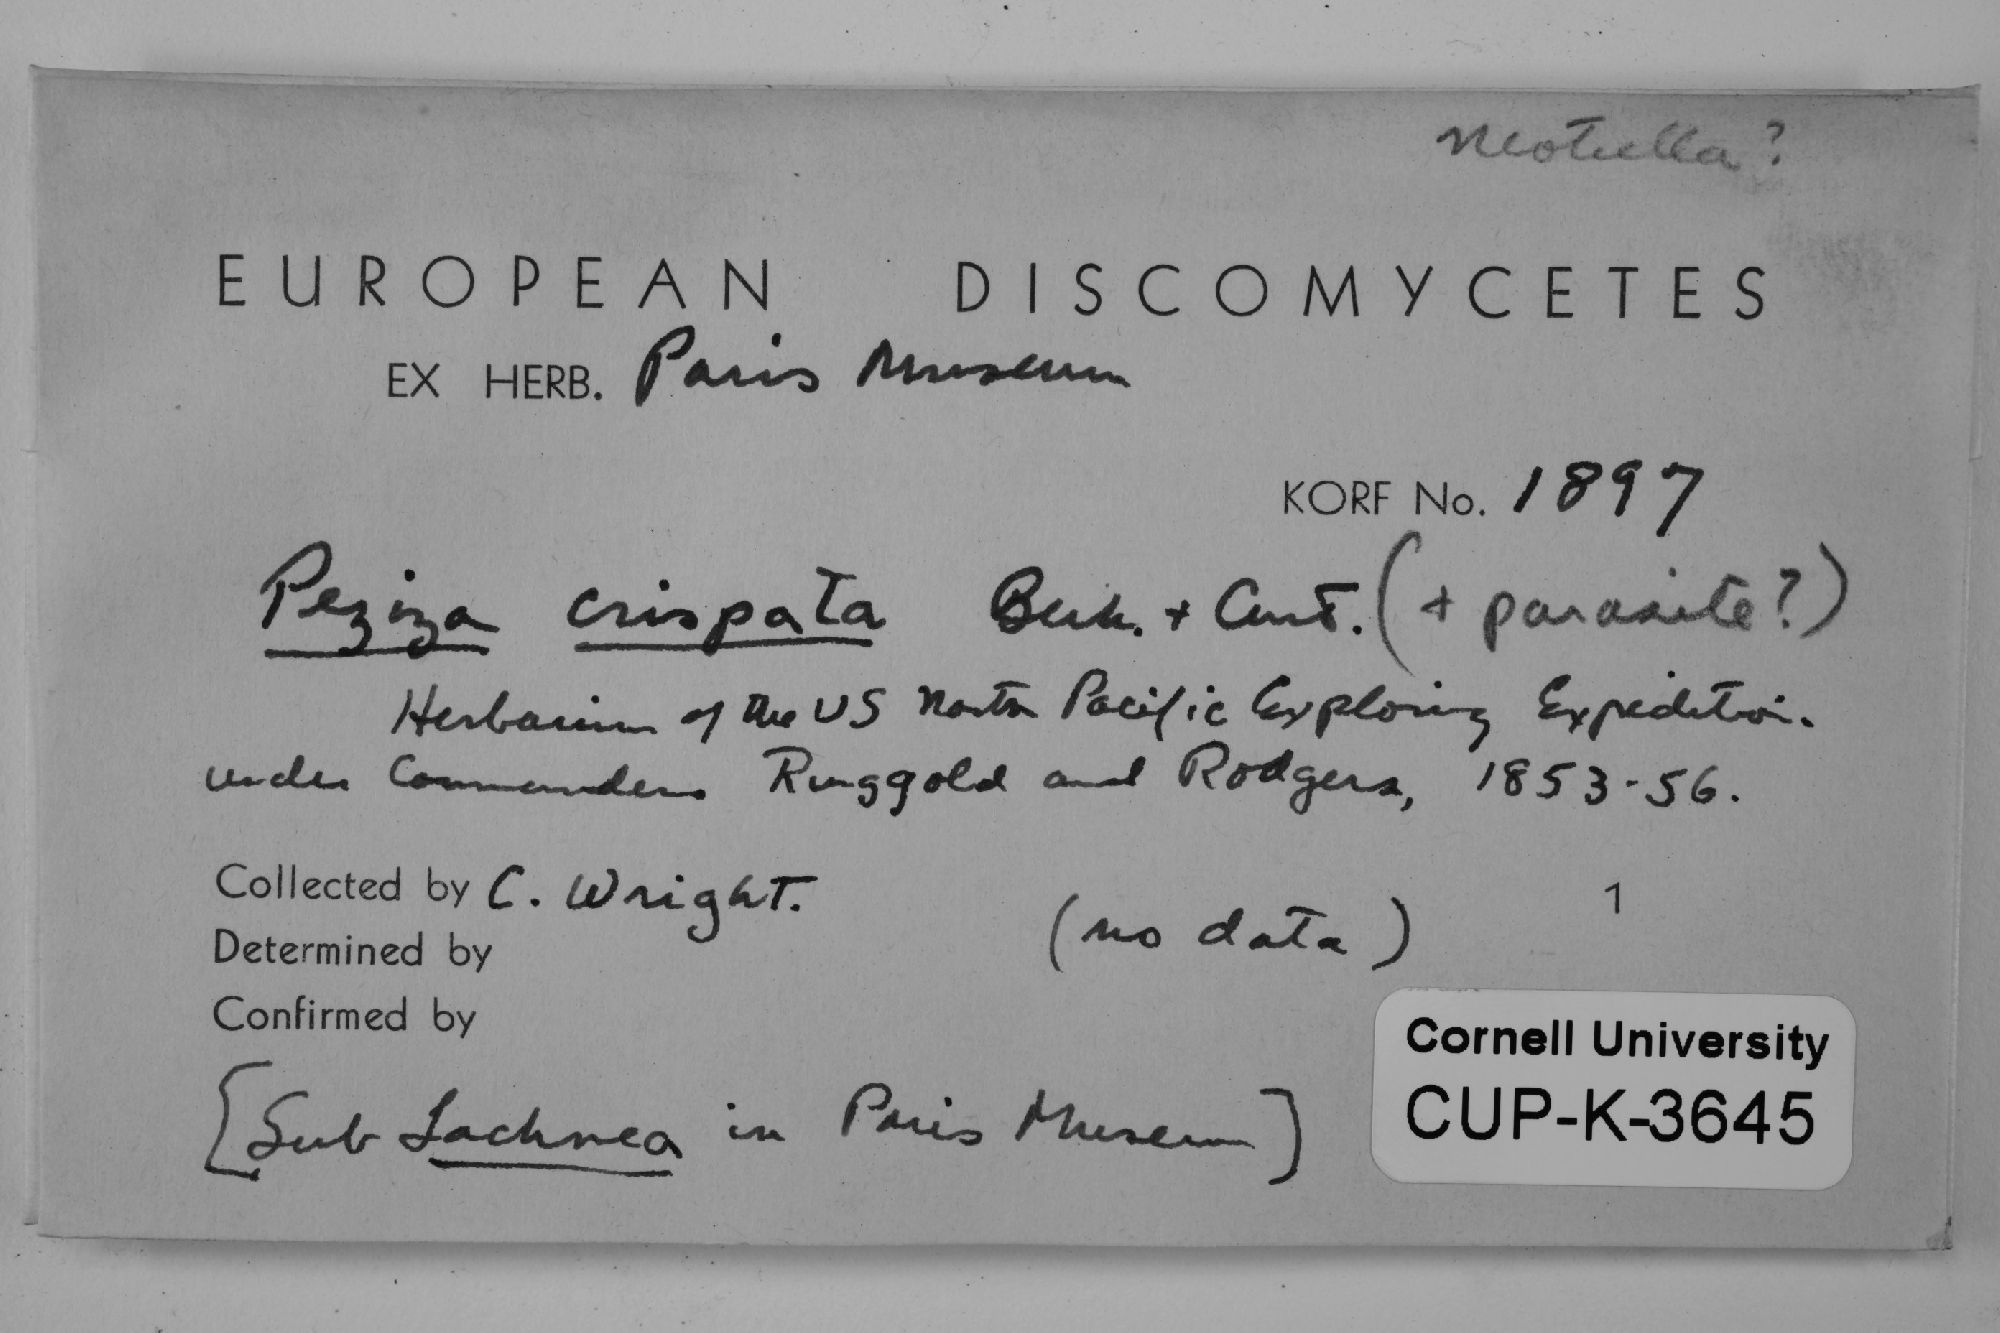 Neotiella?
EUROPEAN DISCOMYCETES
EX HERB. Paris Museum
KORF No. 1897
Peziza crispata Berk. + Curt. (+ parasite?)
Herbarium of the US North Pacific Exploring Expedition.
under Commanders Ringgold and Rodgers, 1853-56.
Collected by C. Wright.
1
Determined by
(no data)
Confirmed by
[Sub Lachnea in Paris Museum]
Cornell University
CUP-K-3645